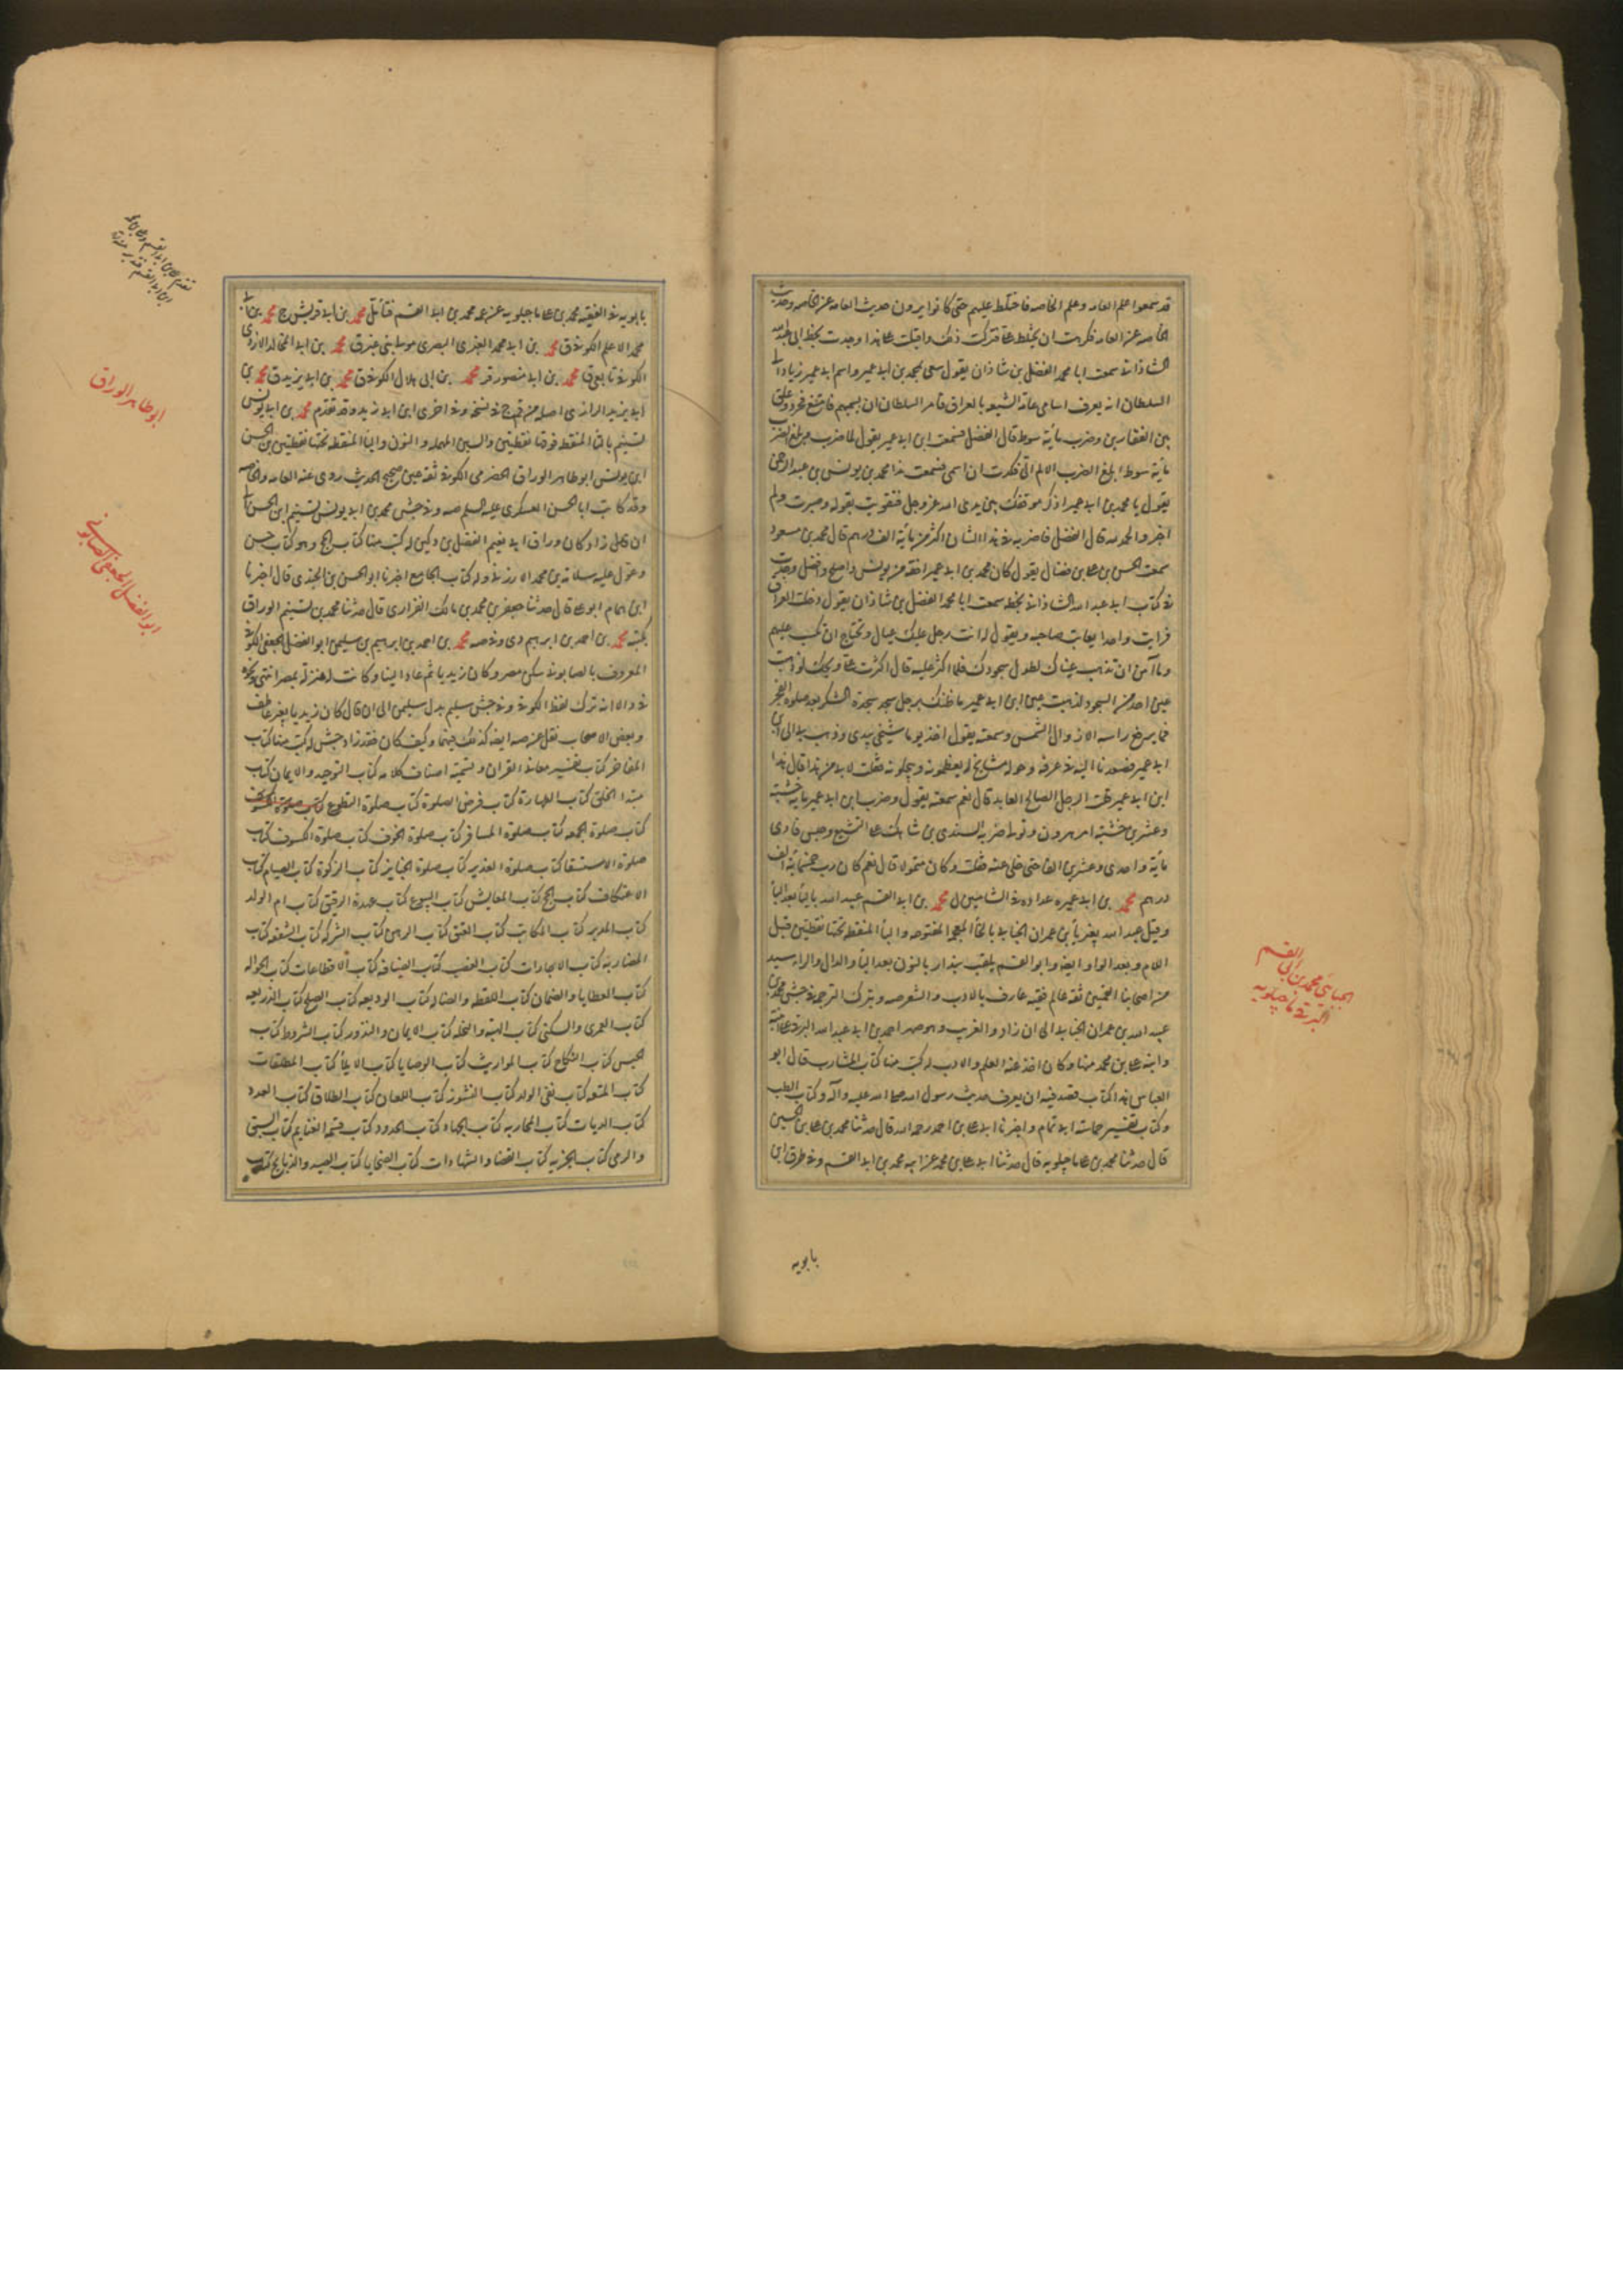 قد سمعوا علم العامه وعلم الخاصه فاختلط عليهم حتى كانوا يروون حديث العامه عن الخاصه وحديث
الخاصه عن العامه فكرهت ان يختلط على فتركت ذلك واقبلت على هذا وجدت بخط ابى عبد الله
الشاذانى سمعت ابا محمد الفضل بن شاذان يقول سعى بمحمد بن ابى عمير واسم ابى عمير زياد الى
السلطان انه يعرف اسامى عامة الشيعه بالعراق فامر السلطان ان يسميهم فامتنع فجرد وعلق
بين العقارين وضرب مأية سوط قال الفضل فسمعت ابن ابى عمير يقول لما ضرب فبلغ الضرب
مأية سوط ابلغ الضرب الالم الى فكدت ان اسمى فسمعت نداء محمد بن يونس بن عبد الرحمن
يقول يا محمد بن ابى عمير اذكر موقفك بين يدى الله عز وجل فتقويت بقوله وصبرت ولم
اخبر والحمد لله قال الفضل فاضر به فى هذا الشان اكثر من مأية الف درهم قال محمد بن مسعود
سمعت الحسن بن على بن فضال يقول كان محمد بن ابى عمير افقه من يونس واصلح وافضل وجدت
فى كتاب ابى عبد الله الشاذانى بخطه سمعت ابا محمد الفضل بن شاذان يقول دخلت العراق
فرايت واحدا يعاتب صاحبه ويقول له انت رجل عليك عيال وتحتاج ان تكسب عليهم
وما آمن ان تذهب عيناك لطول سجودك فلما اكثر عليه قال اكثرت على ويحك لو ذهبت
عين احد من السجود لذهبت عين ابن ابى عمير ما ظنك برجل سجد سجدة الشكر بعد صلوة الفجر
فما يرفع راسه الا زوال الشمس وسمعته يقول اخذ يوما شيخى بيدى وذهب بى الى ابن
ابى عمير فصعدنا اليه فى غرفة وحوله مشايخ له يعظمونه ويبجلونه فقلت لابى من هذا قال هذا
ابن ابى عمير قلت الرجل الصالح العابد قال نعم سمعته يقول وضرب ابن ابى عمير مأية خشبة
وعشرين خشبة امر هرون وتولى ضربه السندى بن شاهك على التشيع وحبس فادى
مأية واحدى وعشرين الفا حتى خلى عنه فقلت وكان متمولا قال نعم كان رب خمسمأية الف
درهم محمد بن ابى عميره عداده فى الشاميين ل محمد بن ابى القسم عبيد الله بالياء بعد الباء
وقيل عبد الله بغير ياء بن عمران الجنابى بالخاء المعجمه المفتوحه والباء المنقطه تحتها نقطتين قبل
اللام وبعد الواو ايضا وابو القسم يلقب بندار بالنون بعد الباء والدال والراء سيد
من اصحابنا القميين ثقه عالم فقيه عارف بالادب والشعر صه وبترك الترجمه فى جش محمد بن
عبيد الله بن عمران الجنابى الى ان زاد والغريب وهو صهر احمد بن ابى عبد الله البرقى على ابنته
وابنه على بن محمد منها وكان اخذ عنه العلم والادب له كتب منها كتاب المشارب قال ابو
العباس هذا كتاب قصد فيه ان يعرف حديث رسول الله صلى الله عليه وآله وكتاب الطب
وكتاب تفسير حماسة ابى تمام واخبرنا ابى على بن احمد رحمه الله قال حدثنا محمد بن على بن الحسين
قال حدثنا محمد بن على ماجيلويه قال حدثنا ابى على بن محمد عن ابيه محمد بن ابى القسم وفى طرق ابن
بابويه
الجنابى محمد بن ابى القسم
البرقى ماجيلويه
بابويه فى الفقيه محمد بن على ماجيلويه عن عمه محمد بن ابى القسم فتأمل محمد بن ابى قريش ج محمد بن
محمد الاعلم الكوفى ق محمد بن ابى محمد العنزى البصرى مولى بنى عنزه ق محمد بن ابى المخالد الازدى
الكوفى تابعى ق محمد بن ابى منصور قر محمد بن ابى هلال الكوفى ق محمد بن ابى يزيد ق محمد بن
ابى يزيد الرازى اصله من قم ج فى نسخه وفى اخرى ابن ابى زيد وقد تقدم محمد بن ابى يونس
تسنيم بالتاء المنقطه فوقها نقطتين والسين المهمله والنون والياء المنقطه تحتها نقطتين بن الحسن
ابن يونس ابو طاهر الوراق الحضرمى الكوفى ثقه عين صحيح الحديث روى عنه العامه والخاصه
وقد كاتب ابا الحسن العسكرى عليه السلم صه وفى جش محمد بن ابى يونس تسنيم ابن الحسن الى
ان قال زاد وكان وراق ابى نعيم الفضل بن دكين له كتب منها كتاب الحج وهو كتاب حسن
وعول عليه سلامة بن محمد الارزنى وله كتاب الجامع اخبرنا ابو الحسن بن الجندى قال اخبرنا
ابن همام ابو على قال حدثنا جعفر بن محمد بن مالك الفزارى قال حدثنا محمد بن تسنيم الوراق
بكتبه محمد بن احمد بن ابرهيم دى وفى صه محمد بن احمد بن ابرهيم بن سليمن ابو الفضل الجعفى الكوفى
المعروف بالصابونى سكن مصر وكان زيديا ثم عاد الينا وكانت له منزلة بمصر انتهى ونحوه
فى د الا انه ترك لفظ الكوفى وفى جش سليم بدل سليمن الى ان قال كان زيديا بغير عاطف
وبعض الاصحاب نقل عن صه ايضا كذلك حينما وكيف كان فقد زاد جش له كتب منها كتاب
المفاخر كتاب تفسير معانى القران وتسمية اصناف كلامه كتاب التوحيد والايمان كتاب
مبتدا الخلق كتاب الطهارة كتاب فرض الصلوة كتاب صلوة التطوع كتاب صلوة الخسوف
كتاب صلوة الجمعه كتاب صلوة المسافر كتاب صلوة الخوف كتاب صلوة الكسوف كتاب
صلوة الاستسقا كتاب صلوة الغدير كتاب صلوة الجنايز كتاب الزكوة كتاب الصيام كتاب
الاعتكاف كتاب الحج كتاب المعايش كتاب البيوع كتاب عهدة الرقيق كتاب ام الولد
كتاب المدبر كتاب المكاتب كتاب العتق كتاب الرهن كتاب الشركه كتاب الشفعه كتاب
المضاربه كتاب الاجارات كتاب الغصب كتاب الضيافه كتاب الاقطاعات كتاب الحواله
كتاب العطايا والضمان كتاب اللقطه والضاله كتاب الوديعه كتاب الصلح كتاب الذريعه
كتاب العمرى والسكنى كتاب الهبه والنحله كتاب الايمان والنذور كتاب الشروط كتاب
الحبس كتاب النكاح كتاب المواريث كتاب الوصايا كتاب الايلاء كتاب المطلقات
كتاب المتعه كتاب نفى الولد كتاب النشوز كتاب اللعان كتاب الطلاق كتاب العدد
كتاب الديات كتاب المحاربه كتاب الجهاد كتاب الحدود كتاب قسمة الغنايم كتاب السبق
والرمى كتاب الجزيه كتاب القضا والشهادات كتاب الضحايا كتاب الصيد والذبايح كتاب
ابو طاهر الوراق
ابو الفضل الجعفى الصابونى